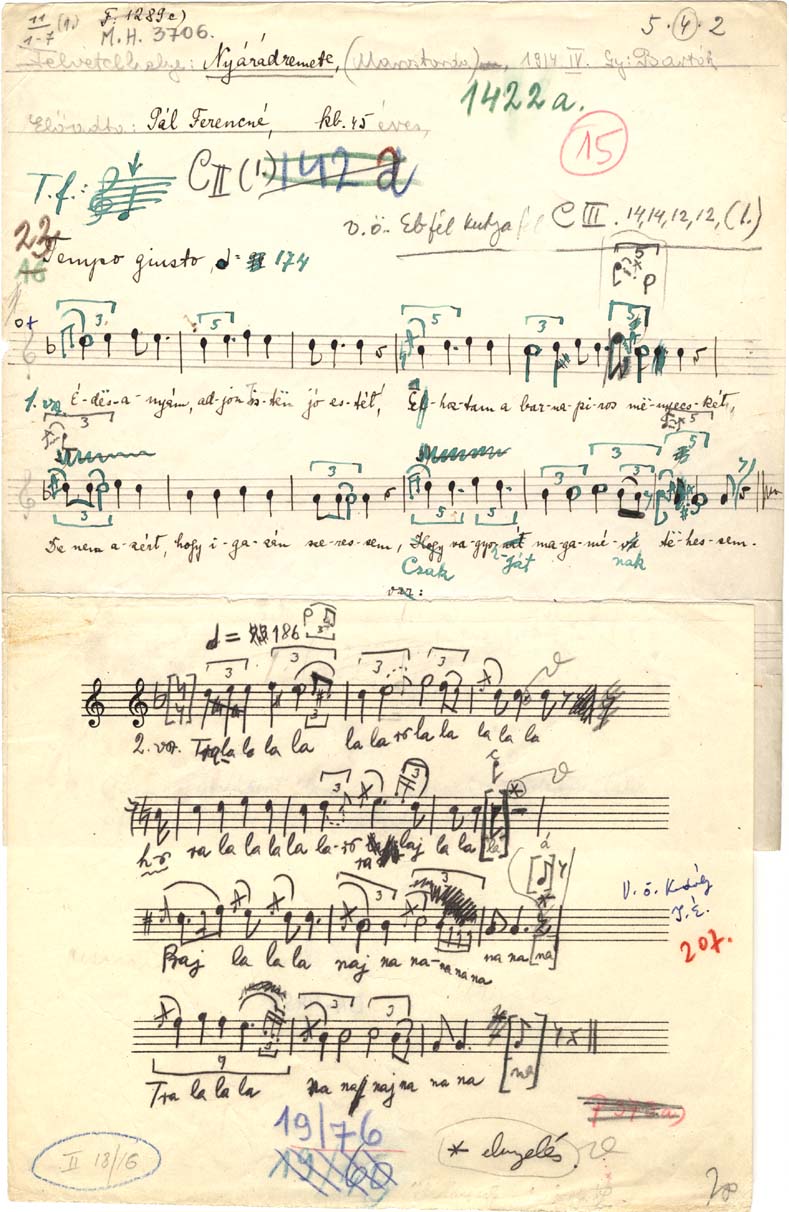 11/1-7 (1.) F. 1289 c) 5. 4. 2
M.H. 3706.
Felvétel helye: Nyárádremete, (Marostorda), 1914 IV. Gy: Bartók
1422 a.
Előadta: Pál Ferencné, kb. 45 éves,
15
T.f.: C II (1.) 142 a
V.ö. Ebfél kutyafél C III. 14, 14, 12, 12, (1.)
23
16
Tempo giusto, = 174
3 5 5 3 5
1. vsz. É-dës-a-nyám, ad-jon Is-tën jó es-tét, El-hoz-tam a bar-na-pi-ros më-nyecs-két,
3 5
3 3 5 5 3 3 5
De nem a-zért, hogy i-ga-zán sze-res-sem, Hogy va-gyo-nát ma-ga-mé-vá të-hes-sem.
Csak r-ját nak
var:
= 186
3 3 3 3
2. vsz. Tra la la la la la la ro la la la la la
3 3
ra la la la la la-ro laj la la [la]
á
V.ö. Kodály
I. É.
207.
3 3
Raj la la la naj na na-na na na na na [na]
3 3
9
Tra la la la na naj naj na na na [na]
19/76
19/60
* elnyelés
II 18/16
20